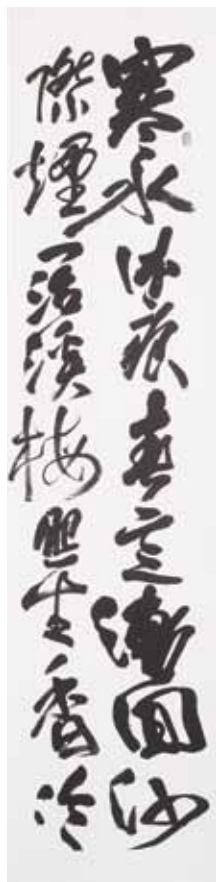 寒水依痕春意漸回沙
際煙闊溪梅照生香冷